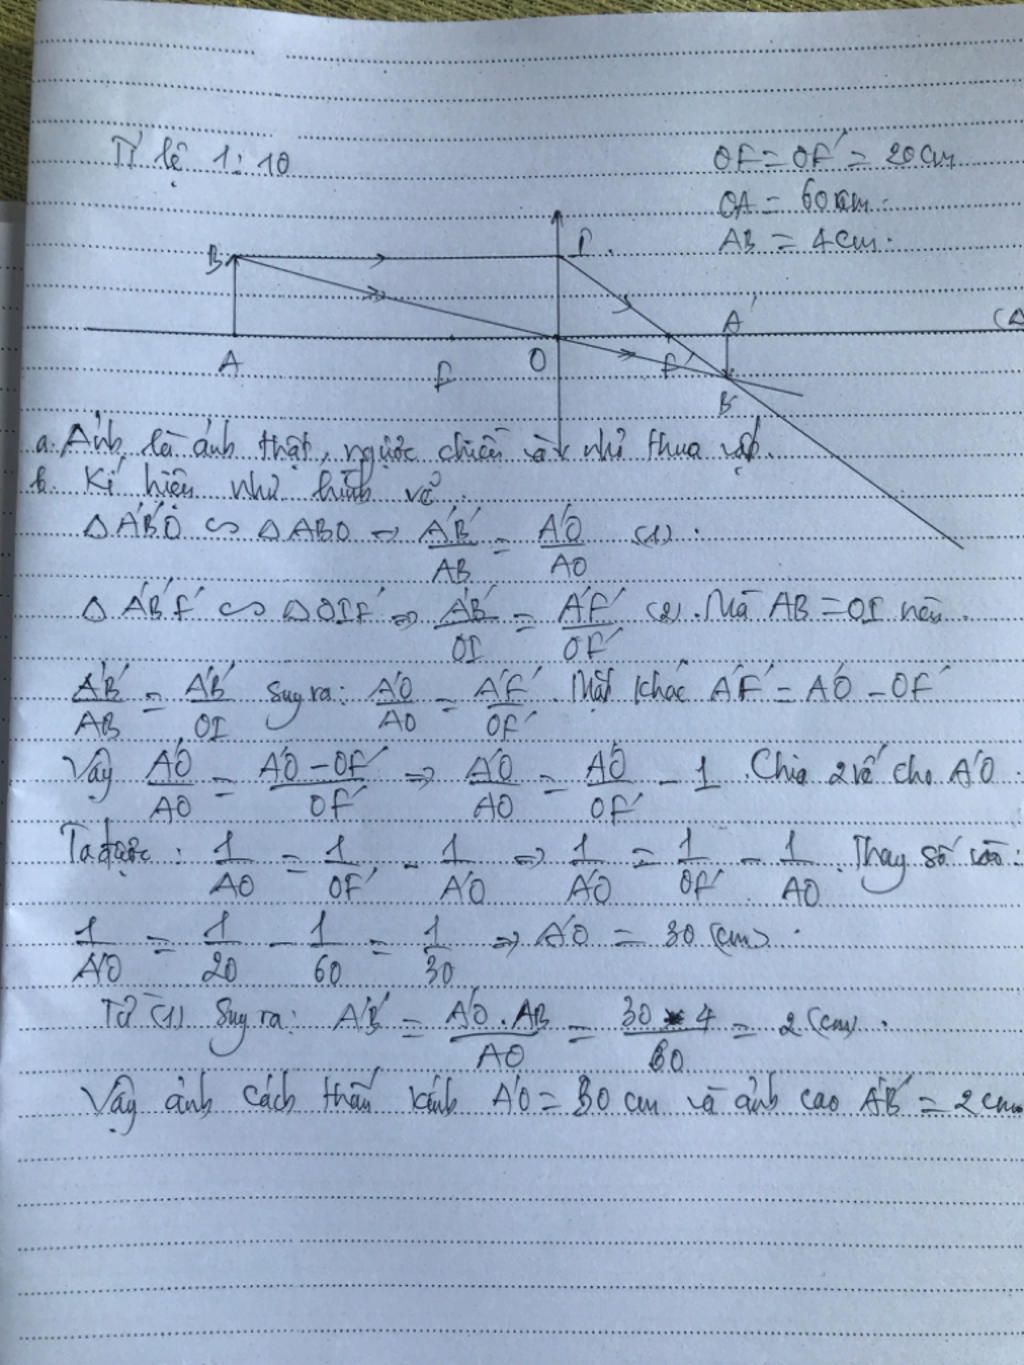 Tỉ lệ 1:10
OF = OF' = 20 cm
OA = 60 cm.
AB = 4 cm.
B I
A F O F' A' B' (Δ
a. Ảnh là ảnh thật, ngược chiều và nhỏ thua vật.
b. Kí hiệu như hình vẽ.
Δ A'B'O ∽ Δ ABO ⇒ A'B'/AB = A'O/AO (1).
Δ A'B'F' ∽ Δ OIF' ⇒ A'B'/OI = A'F'/OF' (2). Mà AB = OI nên.
A'B'/AB = A'B'/OI Suy ra: A'O/AO = A'F'/OF'. Mặt khác A'F' = A'O - OF'
Vậy A'O/AO = A'O - OF'/OF' ⇒ A'O/AO = A'O/OF' - 1. Chia 2 vế cho A'O.
Ta được: 1/AO = 1/OF' - 1/A'O ⇒ 1/A'O = 1/OF' - 1/AO. Thay số vào:
1/A'O = 1/20 - 1/60 = 1/30 ⇒ A'O = 30 (cm).
Từ (1) Suy ra: A'B' = A'O.AB/AO = 30 × 4/60 = 2 (cm).
Vậy ảnh cách thấu kính A'O = 30 cm và ảnh cao A'B' = 2 cm